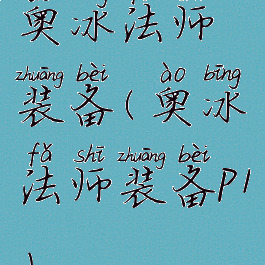 奥冰法师
zhuāng bèi ào bīng
装备(奥冰
fǎ shī zhuāng bèi
法师装备P1
)